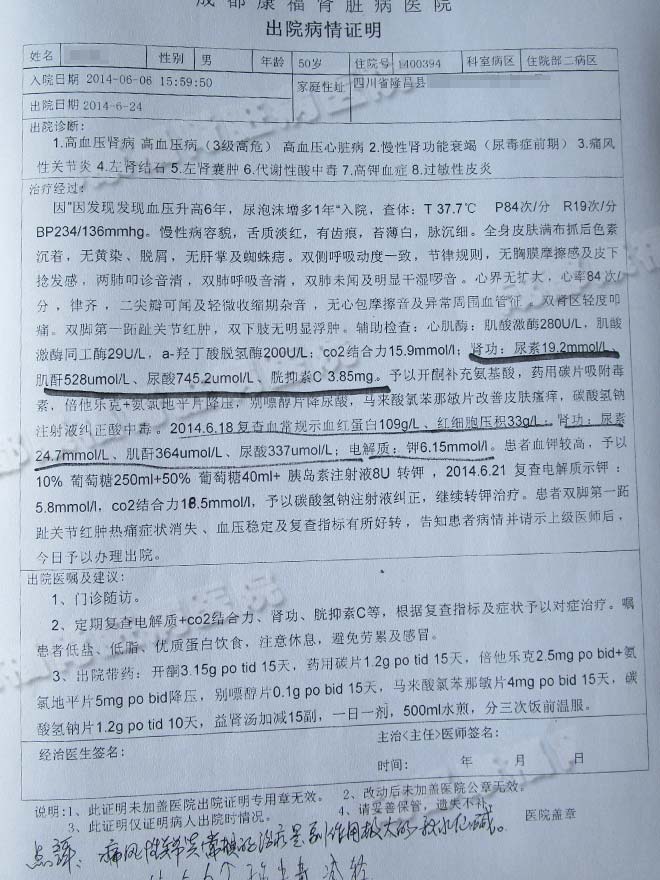 成都康福肾脏病医院
出院病情证明
姓名 性别 男 年龄 50岁 住院号 1400394 科室病区 住院部二病区
入院日期 2014-06-06 15:59:50 家庭性址 四川省隆昌县
出院日期 2014-6-24
出院诊断:
1.高血压肾病 高血压病（3级高危） 高血压心脏病 2.慢性肾功能衰竭（尿毒症前期） 3.痛风
性关节炎 4.左肾结石 5.左肾囊肿 6.代谢性酸中毒 7.高钾血症 8.过敏性皮炎
治疗经过:
因"因发现发现血压升高6年，尿泡沫增多1年"入院，查体：T 37.7℃ P84次/分 R19次/分
BP234/136mmhg。慢性病容貌，舌质淡红，有齿痕，苔薄白，脉沉细。全身皮肤满布抓后色素
沉着，无黄染、脱屑，无肝掌及蜘蛛痣。双侧呼吸动度一致，节律规则，无胸膜摩擦感及皮下
捻发感，两肺叩诊音清，双肺呼吸音清，双肺未闻及明显干湿啰音。心界无扩大，心率84次/
分，律齐，二尖瓣可闻及轻微收缩期杂音，无心包摩擦音及异常周围血管征。双肾区轻度叩
痛。双脚第一跖趾关节红肿，双下肢无明显浮肿。辅助检查：心肌酶：肌酸激酶280U/L，肌酸
激酶同工酶29U/L，a-羟丁酸脱氢酶200U/L；co2结合力15.9mmol/l；肾功：尿素19.2mmol/L、
肌酐528umol/L、尿酸745.2umol/L、胱抑素C 3.85mg。予以开酮补充氨基酸，药用碳片吸附毒
素，倍他乐克+氨氯地平片降压，别嘌醇片降尿酸，马来酸氯苯那敏片改善皮肤瘙痒，碳酸氢钠
注射液纠正酸中毒。2014.6.18复查血常规示血红蛋白109g/L、红细胞压积33g/L；肾功：尿素
24.7mmol/L、肌酐364umol/L、尿酸337umol/L；电解质：钾6.15mmol/l。患者血钾较高，予以
10% 葡萄糖250ml+50% 葡萄糖40ml+ 胰岛素注射液8U 转钾，2014.6.21 复查电解质示钾：
5.8mmol/l，co2结合力18.5mmol/l，予以碳酸氢钠注射液纠正，继续转钾治疗。患者双脚第一跖
趾关节红肿热痛症状消失、血压稳定及复查指标有所好转，告知患者病情并请示上级医师后，
今日予以办理出院。
出院医嘱及建议:
1、门诊随访。
2、定期复查电解质+co2结合力、肾功、胱抑素C等，根据复查指标及症状予以对症治疗。嘱
患者低盐、低脂、优质蛋白饮食，注意休息，避免劳累及感冒。
3、出院带药：开酮3.15g po tid 15天，药用碳片1.2g po tid 15天，倍他乐克2.5mg po bid+氨
氯地平片5mg po bid降压，别嘌醇片0.1g po bid 15天，马来酸氯苯那敏片4mg po bid 15天，碳
酸氢钠片1.2g po tid 10天，益肾汤加减15副，一日一剂，500ml水煎，分三次饭前温服。
经治医生签名: 主治<主任>医师签名:
时间: 年 月 日
说明:1、此证明未加盖医院出院证明专用章无效。 2、改动后未加盖医院公章无效。
3、此证明仅证明病人出院时情况。 4、请妥善保管，遗失不补。 医院盖章
点评：痛风性关节炎常规的治疗是副作用极大的秋水仙碱。